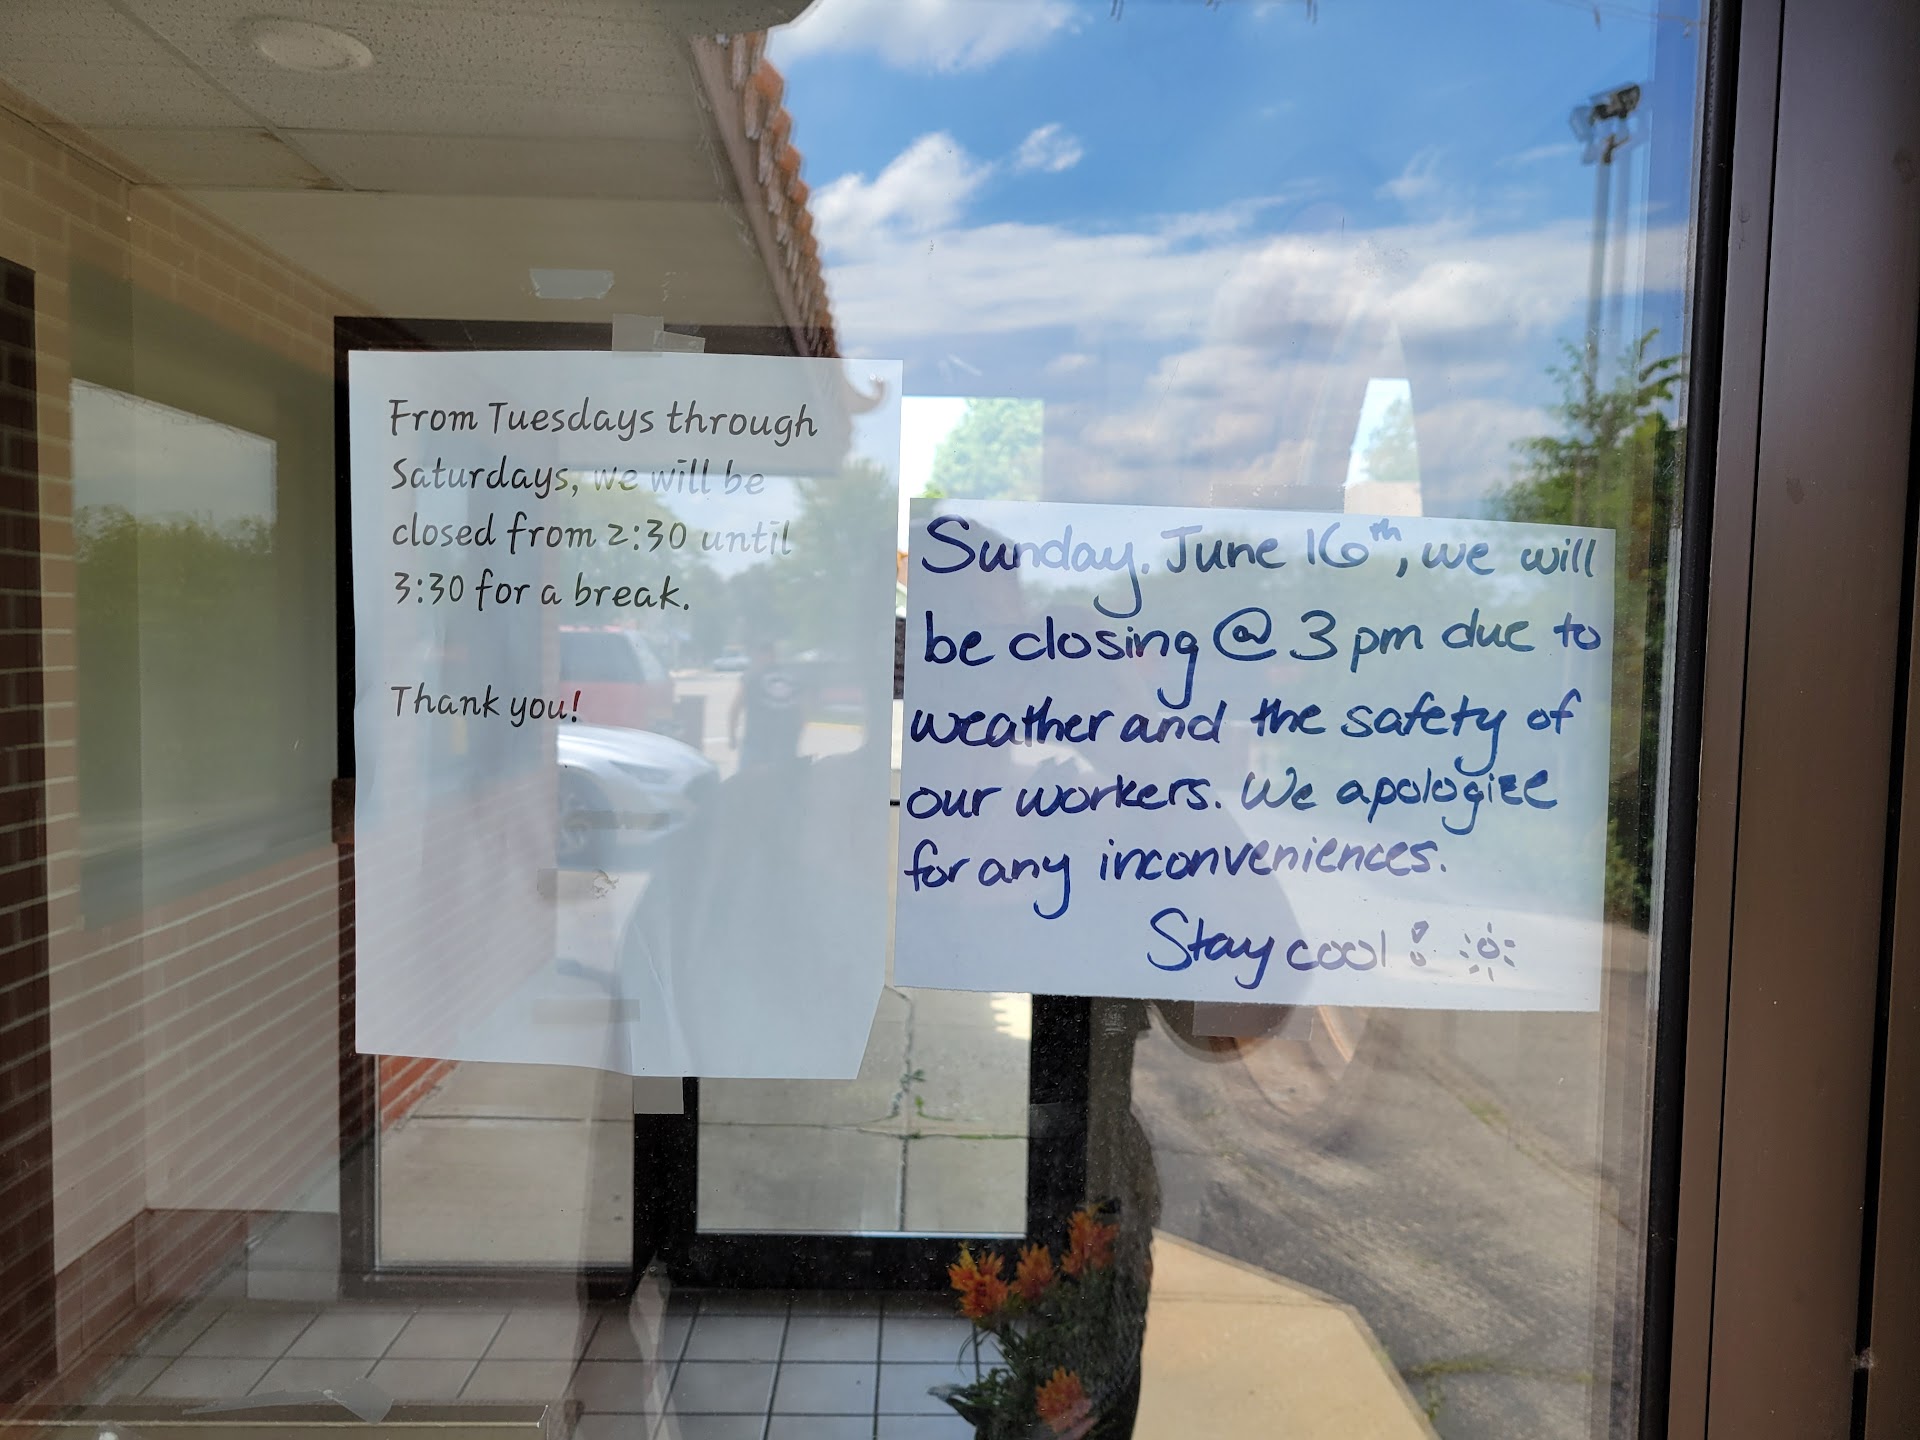 From Tuesdays through
Saturdays, we will be
closed from 2:30 until
3:30 for a break.
Thank you!
Sunday, June 16th, we will
be closing @ 3 pm due to
weather and the safety of
our workers. We apologize
for any inconveniences.
Stay cool!